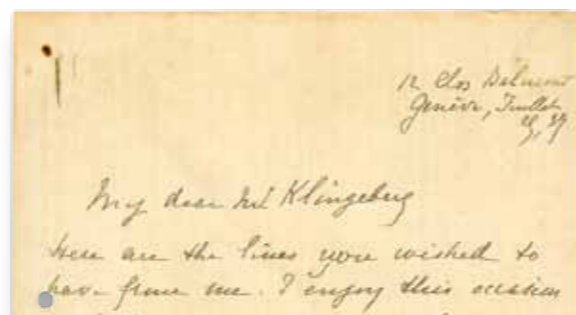 12 Clos Belmont
Genève, Juillet
29, 37
My dear Mr Klingeberg
Here are the lines you wished to
have from me. I enjoy this occasion